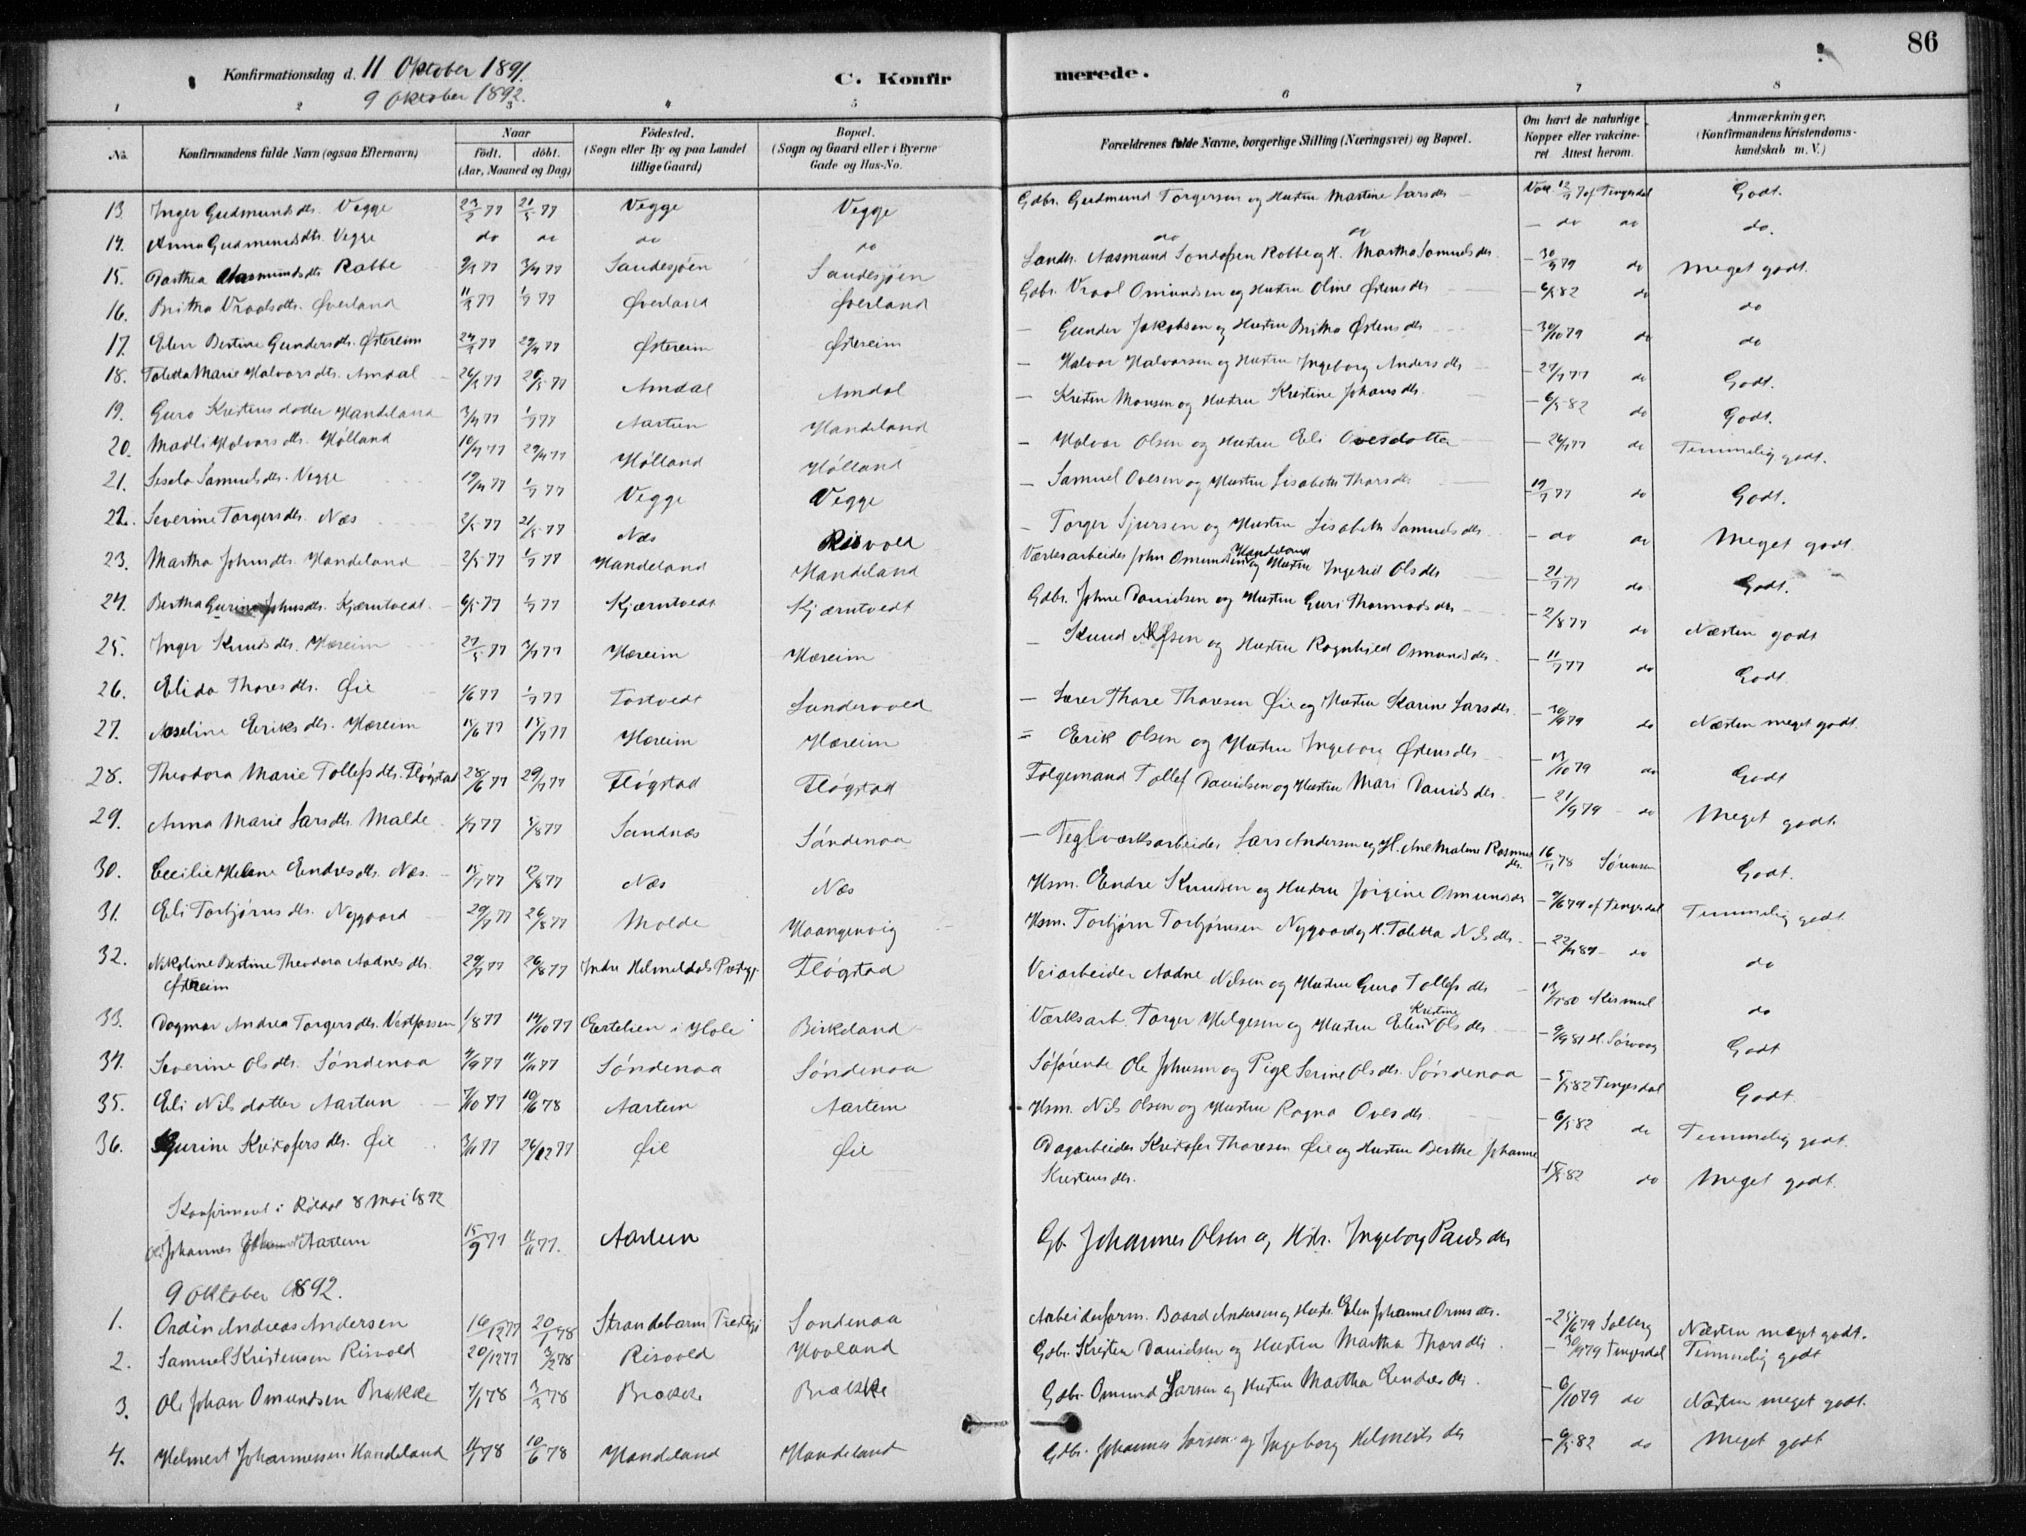 86
Konfirmationsdag d. 11 Oktober 1891.
9 Oktober 1892.
C. Konfirmerede.
1 2 3 4 5 6 7 8
No. Konfirmandens fulde Navn (ogsaa Efternavn) Naar født. døbt. (Aar, Maaned og Dag) Fødested. (Sogn eller By og paa Landet tillige Gaard) Bopæl. (Sogn og Gaard eller i Byerne Gade og Hus-No. Forældrenes fulde Navne, borgerlige Stilling (Næringsvei) og Bopæl. Om havt de naturlige Kopper eller vakcineret. Attest herom. Anmærkninger, (Konfirmandens Kristendomskundskab m. V.)
13. Inger Gudmundsdtr. Vegge 21/5 77 Vegge Vegge Gdbr. Gudmund Torgersen og Hustru Martine Larsdtr. af Tengesdal Godt.
14. Anna Gudmundsdtr. Vegge do do do do do do do do do.
15. Aasmundsdtr Rabbe Sandesjøen Sandesjøen Aasmund Rabbe og H. Martha Samuelsdtr. 30/9 79 do Meget godt.
16. Britha Vraalsdtr. Øverland Øverland Øverland Gdbr. Vraal Omundsen og Hustru Oline Østensdtr do do
17. Elen Bertine Gundersdtr. Østereim Østereim Østereim — Gunder Jakobsen og Hustru Britha Østensdtr 30/10 79 do do
18. Toletta Marie Halvorsdtr. Amdal Amdal Amdal — Halvor Halvorsen og Hustru Ingeborg Andersdtr 27/7 77 do Godt.
19. Guro Kristensdatter Handeland Aartun Handeland — Kristen Monsen og Hustru Kristine Johansdtr. 6/5 82 do Godt.
20. Madli Halvorsdtr. Hølland Hølland Hølland — Halvor Olsen og Hustru Eli Ovesdotter do Temmelig godt.
21. Samuelsdtr. Vegge Vegge Vegge — Samuel Ovesen og Hustru Lisabeth Thorsdtr do Godt.
22. Severine Torgersdtr. Næs 2/5 77 21/5 77 Næs Risvold — Torger Sjursen og Hustru Lisabeth Samuelsdtr. do do Meget godt.
23. Martha Johnsdtr. Handeland 2/5 77 1/7 77 Handeland Handeland Værksarbeider John Omundsen Handeland og Hustru Ingerid Olsdtr 21/7 77 do Godt.
24. Bertha Gurine Johnsdtr. Kjærntvedt 6/5 77 1/7 77 Kjærntvedt Kjærntvedt Gdbr. Johne Danielsen og Hustru Guri Thormodsdtr 2/8 77 do Næsten godt
25. Inger Knudsdtr. Hæreim Hæreim Hæreim — Knud og Hustru Ragnhild Osmundsdtr. 11/7 77 do Godt
26. Elida Thoresdtr. Øie 1/6 77 1/7 77 Tostvedt Sandervold — Lærer Thore Thoresen Øie og Hustru Karine Larsdtr. 30/9 79 do Næsten meget godt.
27. Aseline Eriksdtr. Hæreim 15/6 77 15/7 77 Hæreim Hæreim = Erik Olsen og Hustru Ingeborg Østensdtr 13/10 79 do Godt
28. Theodora Marie Tollefsdtr. Fløgstad 28/6 77 29/7 77 Fløgstad Fløgstad Folgemand Tollef Danielsen og Hustru Mari Danielsdtr. 21/9 79 do Meget godt.
29. Anna Marie Larsdtr. Malde Sandnæs Søndenaa — Teglværksarbeider Lars Andersen og H. Ane Malene Rasmusdtr. 78 Sørensen Godt.
30. Cecilie Helene Endresdtr. Næs Næs Næs Hsm. Endre Knudsen og Hustru Jørgine Osmundsdtr af Tengesdal Temmelig godt.
31. Eli Torbjørnsdtr. Nygaard 29/7 77 26/8 77 Molde Haangenvig Hsm. Torbjørn Torbjørnsen Nygaard og H. Toletta Nilsdtr. do do
32. Nikoline Bertine Theodora Aadnesdtr. Østreim 29/7 77 26/8 77 Indre Holmedals Præstegj. Fløgstad Veiarbeider Aadne Nilsen og Hustru Guro Tollefsdtr do
33. Dagmar Andrea Torgersdtr. Vestfossen 1/8 77 14/10 77 i Hole Birkeland Værksarb. Torger Helgesen og Hustru Elen Kristine Olsdtr. Godt
34. Severine Olsdtr. Søndenaa Søndenaa Søndenaa Søførende Ole Johnsen og Pige Serine Olsdtr. Søndenaa 82 Tengesdal Godt.
35. Eli Nilsdatter Aartun 7/10 77 10/6 78 Aartun Aartun Hsm. Nils Olsen og Hustru Ragna Ovesdtr. 6/5 82 do Temmelig godt.
36. Gurine Kristofersdtr. Øie 3/11 77 26/12 77 Øie Øie Dagarbeider Kristofer Thoresen Øie og Hustru Berthe Johanne Kristensdtr. 15/5 82 do Meget godt.
Konfirmeret i Røldal 8 Mai 1892
Johannes Aartun 15/9 77 Aartun Gb. Johannes Olsen og Hstr. Ingeborg Paulsdtr
9 Oktober 1892.
1. Andreas Andersen 16/12 77 20/1 78 Strandebarm Præstegj Sondenaa Arbeidsform. Baard Andersen og Hustr. Elen Johanne Ormsdtr. 25/6 79 Solberg Næsten meget godt.
2. Samuel Kristensen Risvold 20/12 77 3/2 78 Risvold Hovland Gdbr. Kristen Danielsen og Hustru Martha Thorsdtr. 30/9 79 Tengesdal Temmelig godt
3. Ole Johan Omundsen Brække 7/1 78 3/3 78 Brække Brække Gdbr. Omund Larsen og Hustru Martha Endresdtr. 6/10 79 do Næsten meget godt.
4. Helmert Johannessen Handeland 78 10/6 78 Handeland Handeland Gdbr. Johannes Larsen og Ingeborg Helmertsdtr 6/5 82 do Meget godt